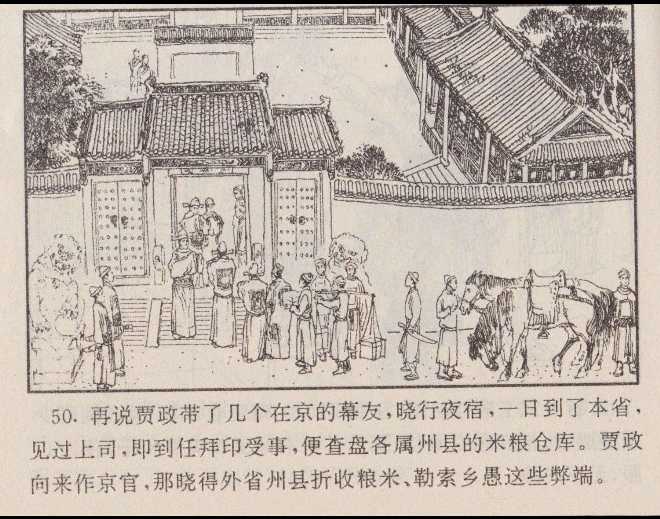 50. 再说贾政带了几个在京的幕友,晓行夜宿,一日到了本省,
见过上司,即到任拜印受事,便查盘各属州县的米粮仓库。贾政
向来作京官,那晓得外省州县折收粮米、勒索乡愚这些弊端。